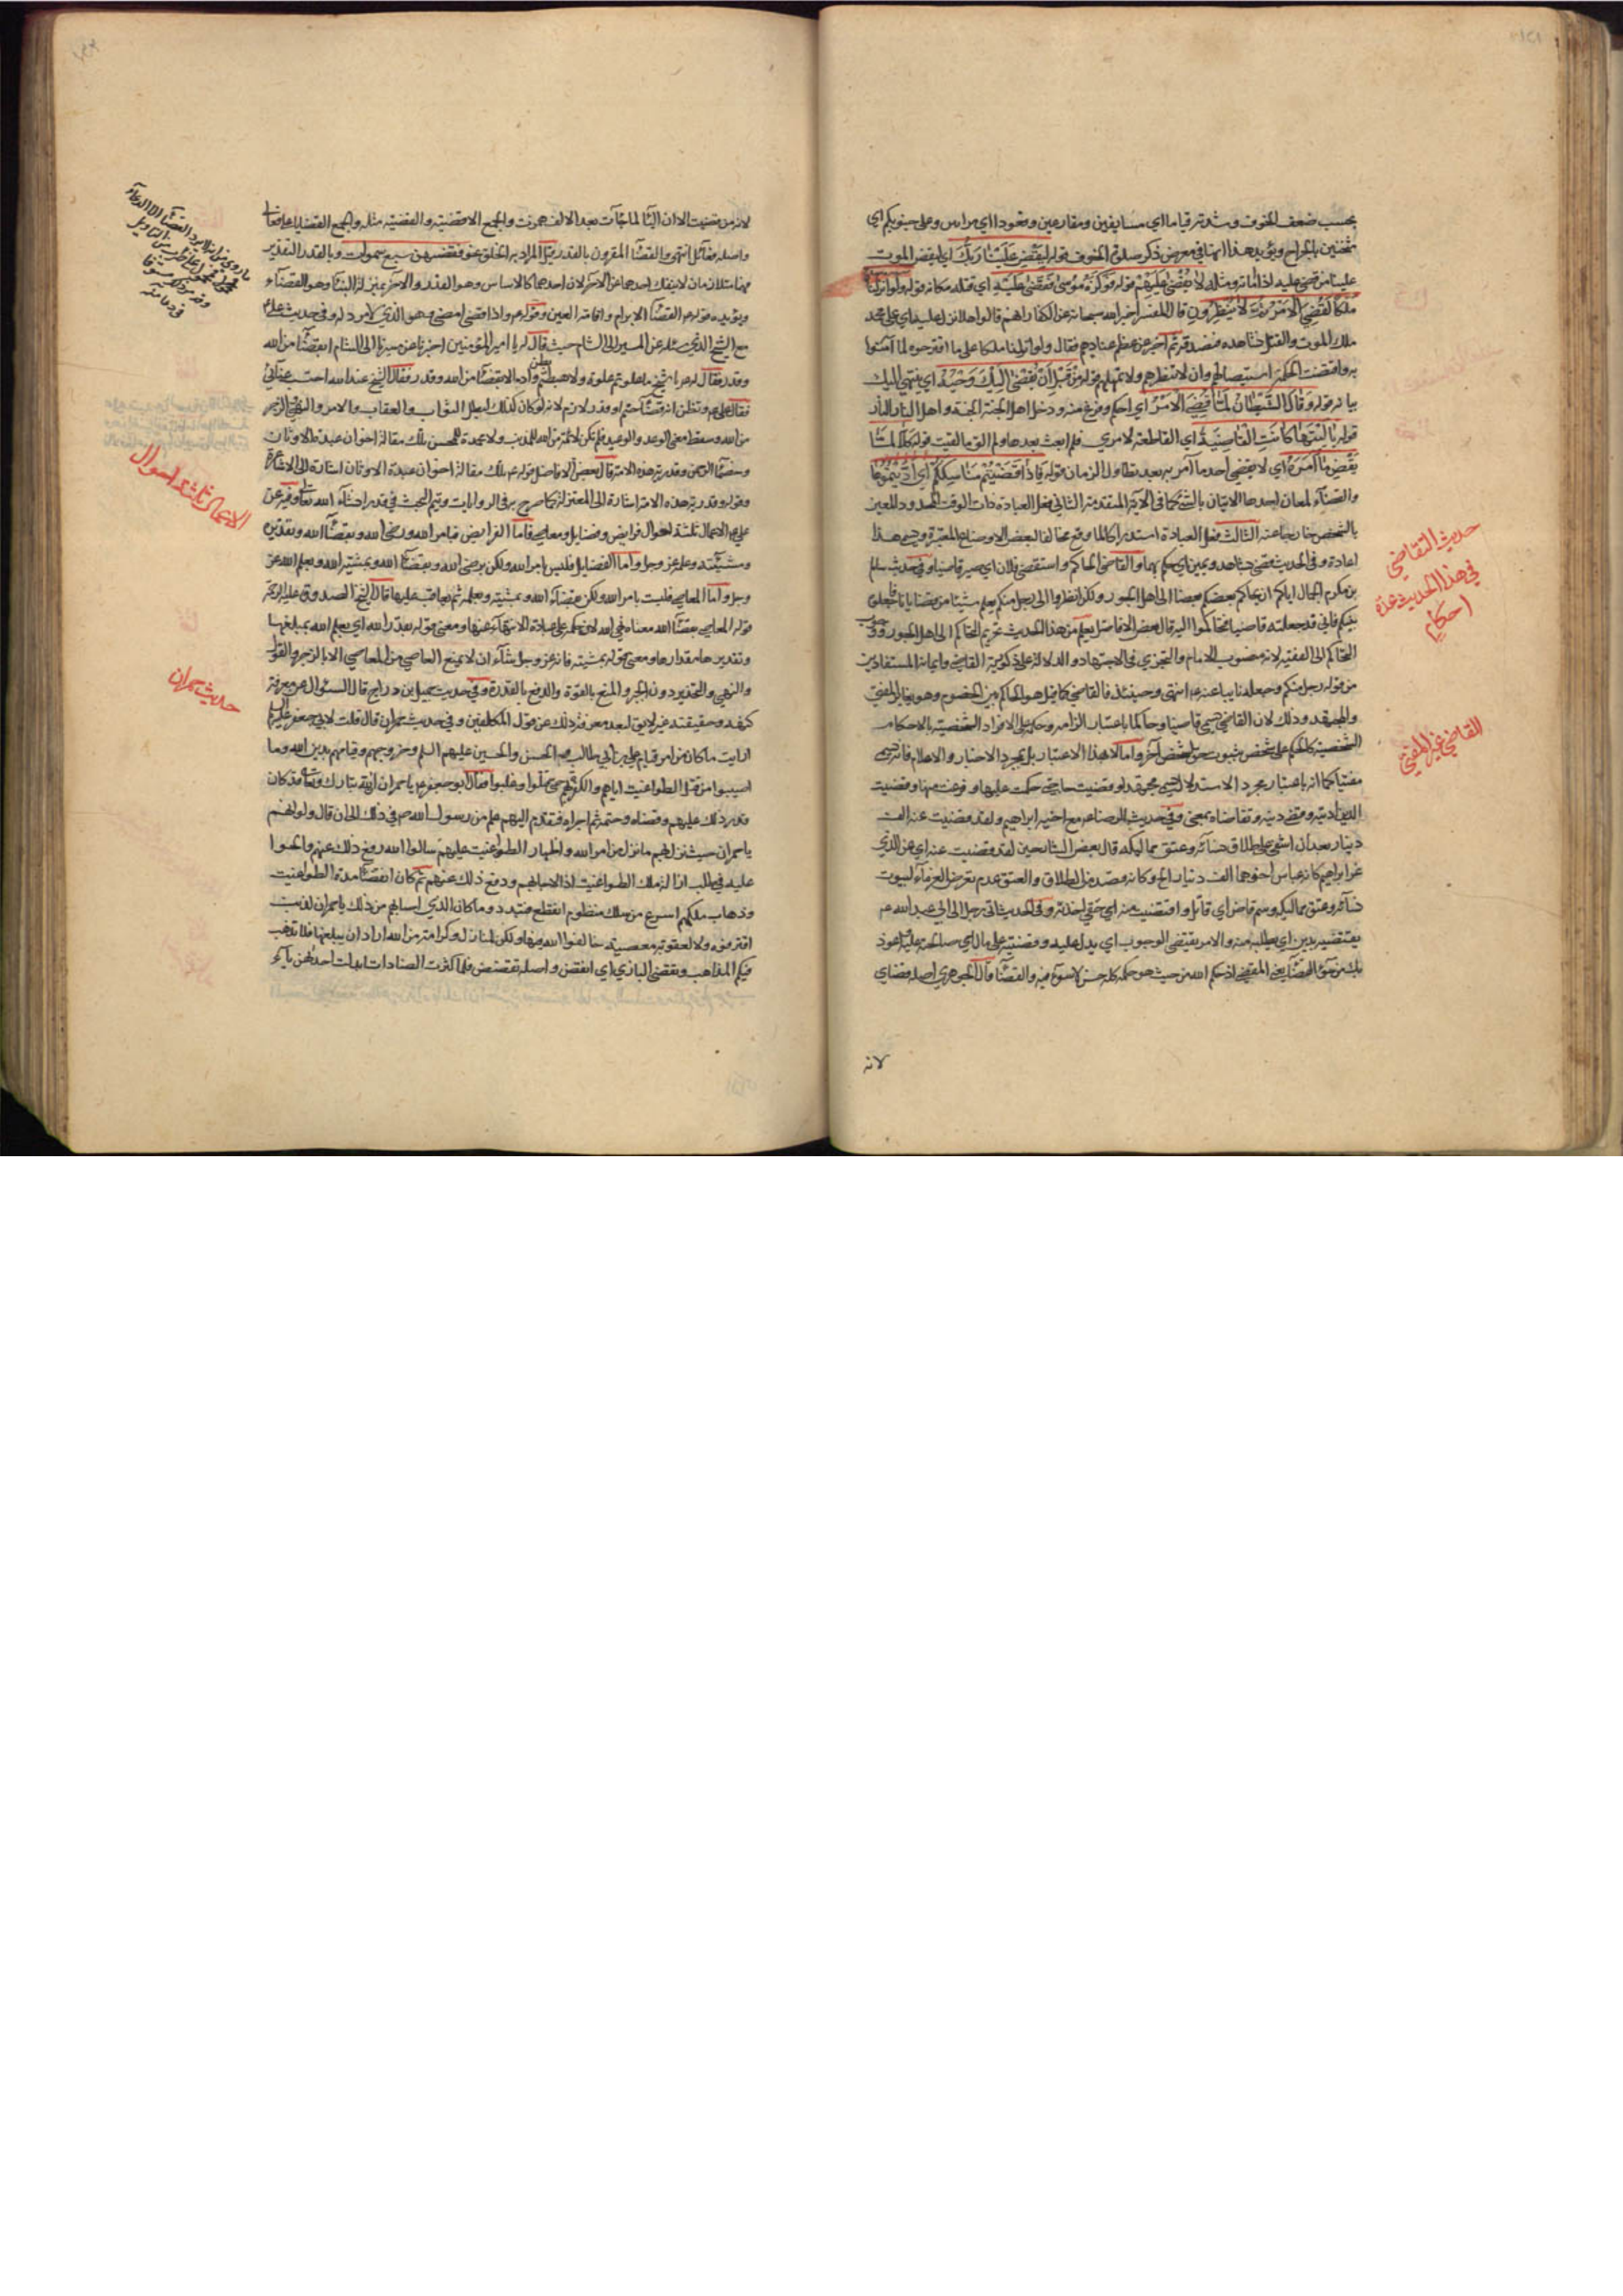 بحسب ضعف الخوف وشدته قياما اي مسايفين ومقارعين وقعودا اي مرامين وعلى جنوبكم اي
مثخنين بالجراح ويؤيد هذا انها في معرض ذكر صلوة الخوف قوله ليقض علينا ربك اي ليقض الموت
علينا من قضى عليه اذا اماته ومثله لا يقضى عليهم قوله فوكزه موسى فقضى عليه اي قتله مكانه قوله ولو انزلنا
ملكا لقضي الامر ثم لا ينظرون قال المفسر اخبر الله سبحانه عن الكفار انهم قالوا لولا انزل عليه اي على محمد
ملك الموت والقتل نشاهده فنصدقه ثم اخبر عن عظم عنادهم فقال ولو انزلنا ملكا على ما اقترحوه لما آمنوا
به واقتضت الحكمة استيصالهم وان لا ننظرهم ولا نمهلهم قوله من قبل ان يقضى اليك وحيه اي ينتهي اليك
بيانه قوله وقال الشيطان لما قضي الامر اي احكم وفرغ منه ودخل اهل الجنة الجنة واهل النار النار
قوله يا ليتها كانت القاضية اي القاطعة لامري فلم ابعث بعدها ولم الق ما لقيت قوله كلا لما
يقض ما امره اي لا يقضي احد ما امر به بعد تطاول الزمان قوله فاذا قضيتم مناسككم اي اديتموها
والقضاء لمعان احدها الاتيان بالشئ كما في الآية المتقدمة الثاني فعل العبادة ذات الوقت المحدود المعين
بالشخص خارجا عنه الثالث فعل العبادة استدراكا لما وقع مخالفا لبعض الاوضاع المعتبرة ويسمى هذا
اعادة وفي الحديث قضى بشاهد ويمين اي حكم بهما والقاضي الحاكم واستقضي فلان اي صير قاضيا وفي حديث سالم
بن مكرم الجمال اياكم ان يحاكم بعضكم بعضا الى اهل الجور ولكن انظروا الى رجل منكم يعلم شيئا من قضايانا فاجعلوه
بينكم فاني قد جعلته قاضيا فتحاكموا اليه قال بعض الافاضل يعلم من هذا الحديث تحريم التحاكم الى اهل الجور ووجوب
التحاكم الى الفقيه لانه منصوب الامام والتجزي في الاجتهاد والدلالة على ذكورية القاضي وايمانه المستفادين
من قوله رجل منكم وجعله نايبا عنه عم انتهى وحينئذ فالقاضي كما قيل هو الحاكم بين الخصوم وهو يغاير المفتي
والمجتهد وذلك لان القاضي يسمى قاضيا وحاكما باعتبار الزامه وحكمه على الافراد الشخصية بالاحكام
الشخصية كالحكم على شخص بثبوت حق لشخص آخر واما لا بهذا الاعتبار بل بمجرد الاخبار والاعلام فانه يسمى
مفتيا كما انه باعتبار مجرد الاستدلال يسمى مجتهدا وقضيت حاجتي حكمت عليها وفرغت منها وقضيت
الدين اديته وقضى دينه وتقاضاه بمعنى وفي حديث الرضا عم مع اخيه ابراهيم ولقد قضيت عنه الف
دينار بعد ان اشفى على طلاق نسائه وعتق مماليكه قال بعض الشارحين لقد قضيت عنه اي عن الذي
غر ابراهيم كانه عباس اخوهما الف دينار الخ وكانه قصد من الطلاق والعتق عدم تعرض الغرماء لبيوت
نسائه وعتق مماليكه وسم قاض اي قاتل واقتضيت منه اي حقي اخذته وفي الحديث اتى رجل الى ابي عبد الله عم
يقتضيه بدين اي يطلبه منه والامر يقتضي الوجوب اي يدل عليه وقضيته على مال اي صالحته عليه اعوذ
بك من سوء القضاء يعني المقضي اذ حكم الله من حيث هو حكمه كله حسن لا سوء فيه والقضاء قال الجوهري اصله قضاي
لانه
حديث التقاضي
في هذا الحديث عدة
احكام
القاضي غير المفتي
لانه من قضيت الا ان الياء لما جاءت بعد الالف همزت والجمع الاقضية والقضية مثله والجمع القضايا على فعالى
واصله فعائل انتهى والقضاء المقرون بالقدر قيل المراد به الخلق نحو فقضيهن سبع سموات وبالقدر التقدير
فهما متلازمان لا ينفك احدهما عن الآخر لان احدهما كالاساس وهو القدر والآخر بمنزلة البناء وهو القضاء
ويؤيده قوله عم القضاء الابرام واقامة العين وقوله عم واذا قضى امضى وهو الذي لا مرد له وفي حديث علي عم
مع الشيخ الذي سئله عن المسير الى الشام حيث قال له يا امير المؤمنين اخبرنا عن مسيرنا الى الشام ابقضاء من الله
وقدر فقال له عم يا شيخ ما علوتم علوة ولا هبطتم بطن واد الا بقضاء من الله وقدر فقال الشيخ عند الله احتسب عنائي
فقال علي عم وتظن انه قضاء حتم او قدر لازم لانه لو كان كذلك لبطل الثواب والعقاب والامر والنهي والزجر
من الله وسقط معنى الوعد والوعيد فلم تكن لائمة من الله للمذنب ولا محمدة للمحسن تلك مقالة اخوان عبدة الاوثان
وخصماء الرحمن وقدرية هذه الامة قال بعض الافاضل قوله عم تلك مقالة اخوان عبدة الاوثان اشارة الى الاشاعرة
وقوله وقدرية هذه الامة اشارة الى المعتزلة كما صرح به في الروايات ويتم البحث في قدر انشاء الله تعالى وفيه عن
علي عم الاعمال ثلثة احوال فرايض وفضايل ومعاصي فاما الفرايض فبامر الله ورضى الله وبقضاء الله وتقديره
ومشيئته وعلمه عز وجل واما الفضايل فليس بامر الله ولكن برضى الله وبقضاء الله وبمشية الله وبعلم الله عز
وجل واما المعاصي فليست بامر الله ولكن بقضاء الله وبمشيته وبعلمه ثم يعاقب عليها قال الشيخ الصدوق عليه الرحمة
قوله المعاصي بقضاء الله معناه نهي الله لان حكمه على عباده الانتهاء عنها ومعنى قوله بقدر الله اي بعلم الله بمبلغها
وتقدير ها مقدارها ومعنى قوله بمشيته فانه عز وجل شاء ان لا يمنع العاصي من المعاصي الا بالزجر والقول
والنهي والتحذير دون الجبر والمنع بالقوة والدفع بالقدرة وفي حديث جميل بن دراج قال السئوال عن معرفة
كنهه وحقيقته غير لايق لبعد معرفة ذلك عن عقول المكلفين وفي حديث حمران قال قلت لابي جعفر عليه السلم
ارايت ما كان من امر قيام علي بن ابي طالب والحسن والحسين عليهم السلم وخروجهم وقيامهم بدين الله وما
اصيبوا من قتل الطواغيت اياهم والظفر بهم حتى قتلوا وغلبوا فقال ابو جعفر عم يا حمران ان الله تبارك وتعالى قد كان
قدر ذلك عليهم وقضاه وحتمه ثم اجراه فتقدم اليهم علم من رسول الله صم في ذلك الى ان قال ولو انهم
يا حمران حيث نزل بهم ما نزل من امر الله واظهار الطواغيت عليهم سالوا الله رفع ذلك عنهم والحوا
عليه في طلب ازالة ملك الطواغيت اذا لاجابهم ودفع ذلك عنهم ثم كان انقضاء مدة الطواغيت
وذهاب ملكهم اسرع من سلك منظوم انقطع فتبدد وما كان الذي اصابهم من ذلك يا حمران لذنب
اقترفوه ولا لعقوبة معصية خالفوا الله فيها ولكن لمنازل وكرامة من الله اراد ان يبلغها فلا تذهب
فيكم المذاهب وتقضى البازي اي انقض واصله تقضض فلما كثرت الضادات ابدلت احداهن ياء
ما روي من انه لا يرد القضاء الا الدعاء
الاعمال ثلثة احوال
حديث حمران